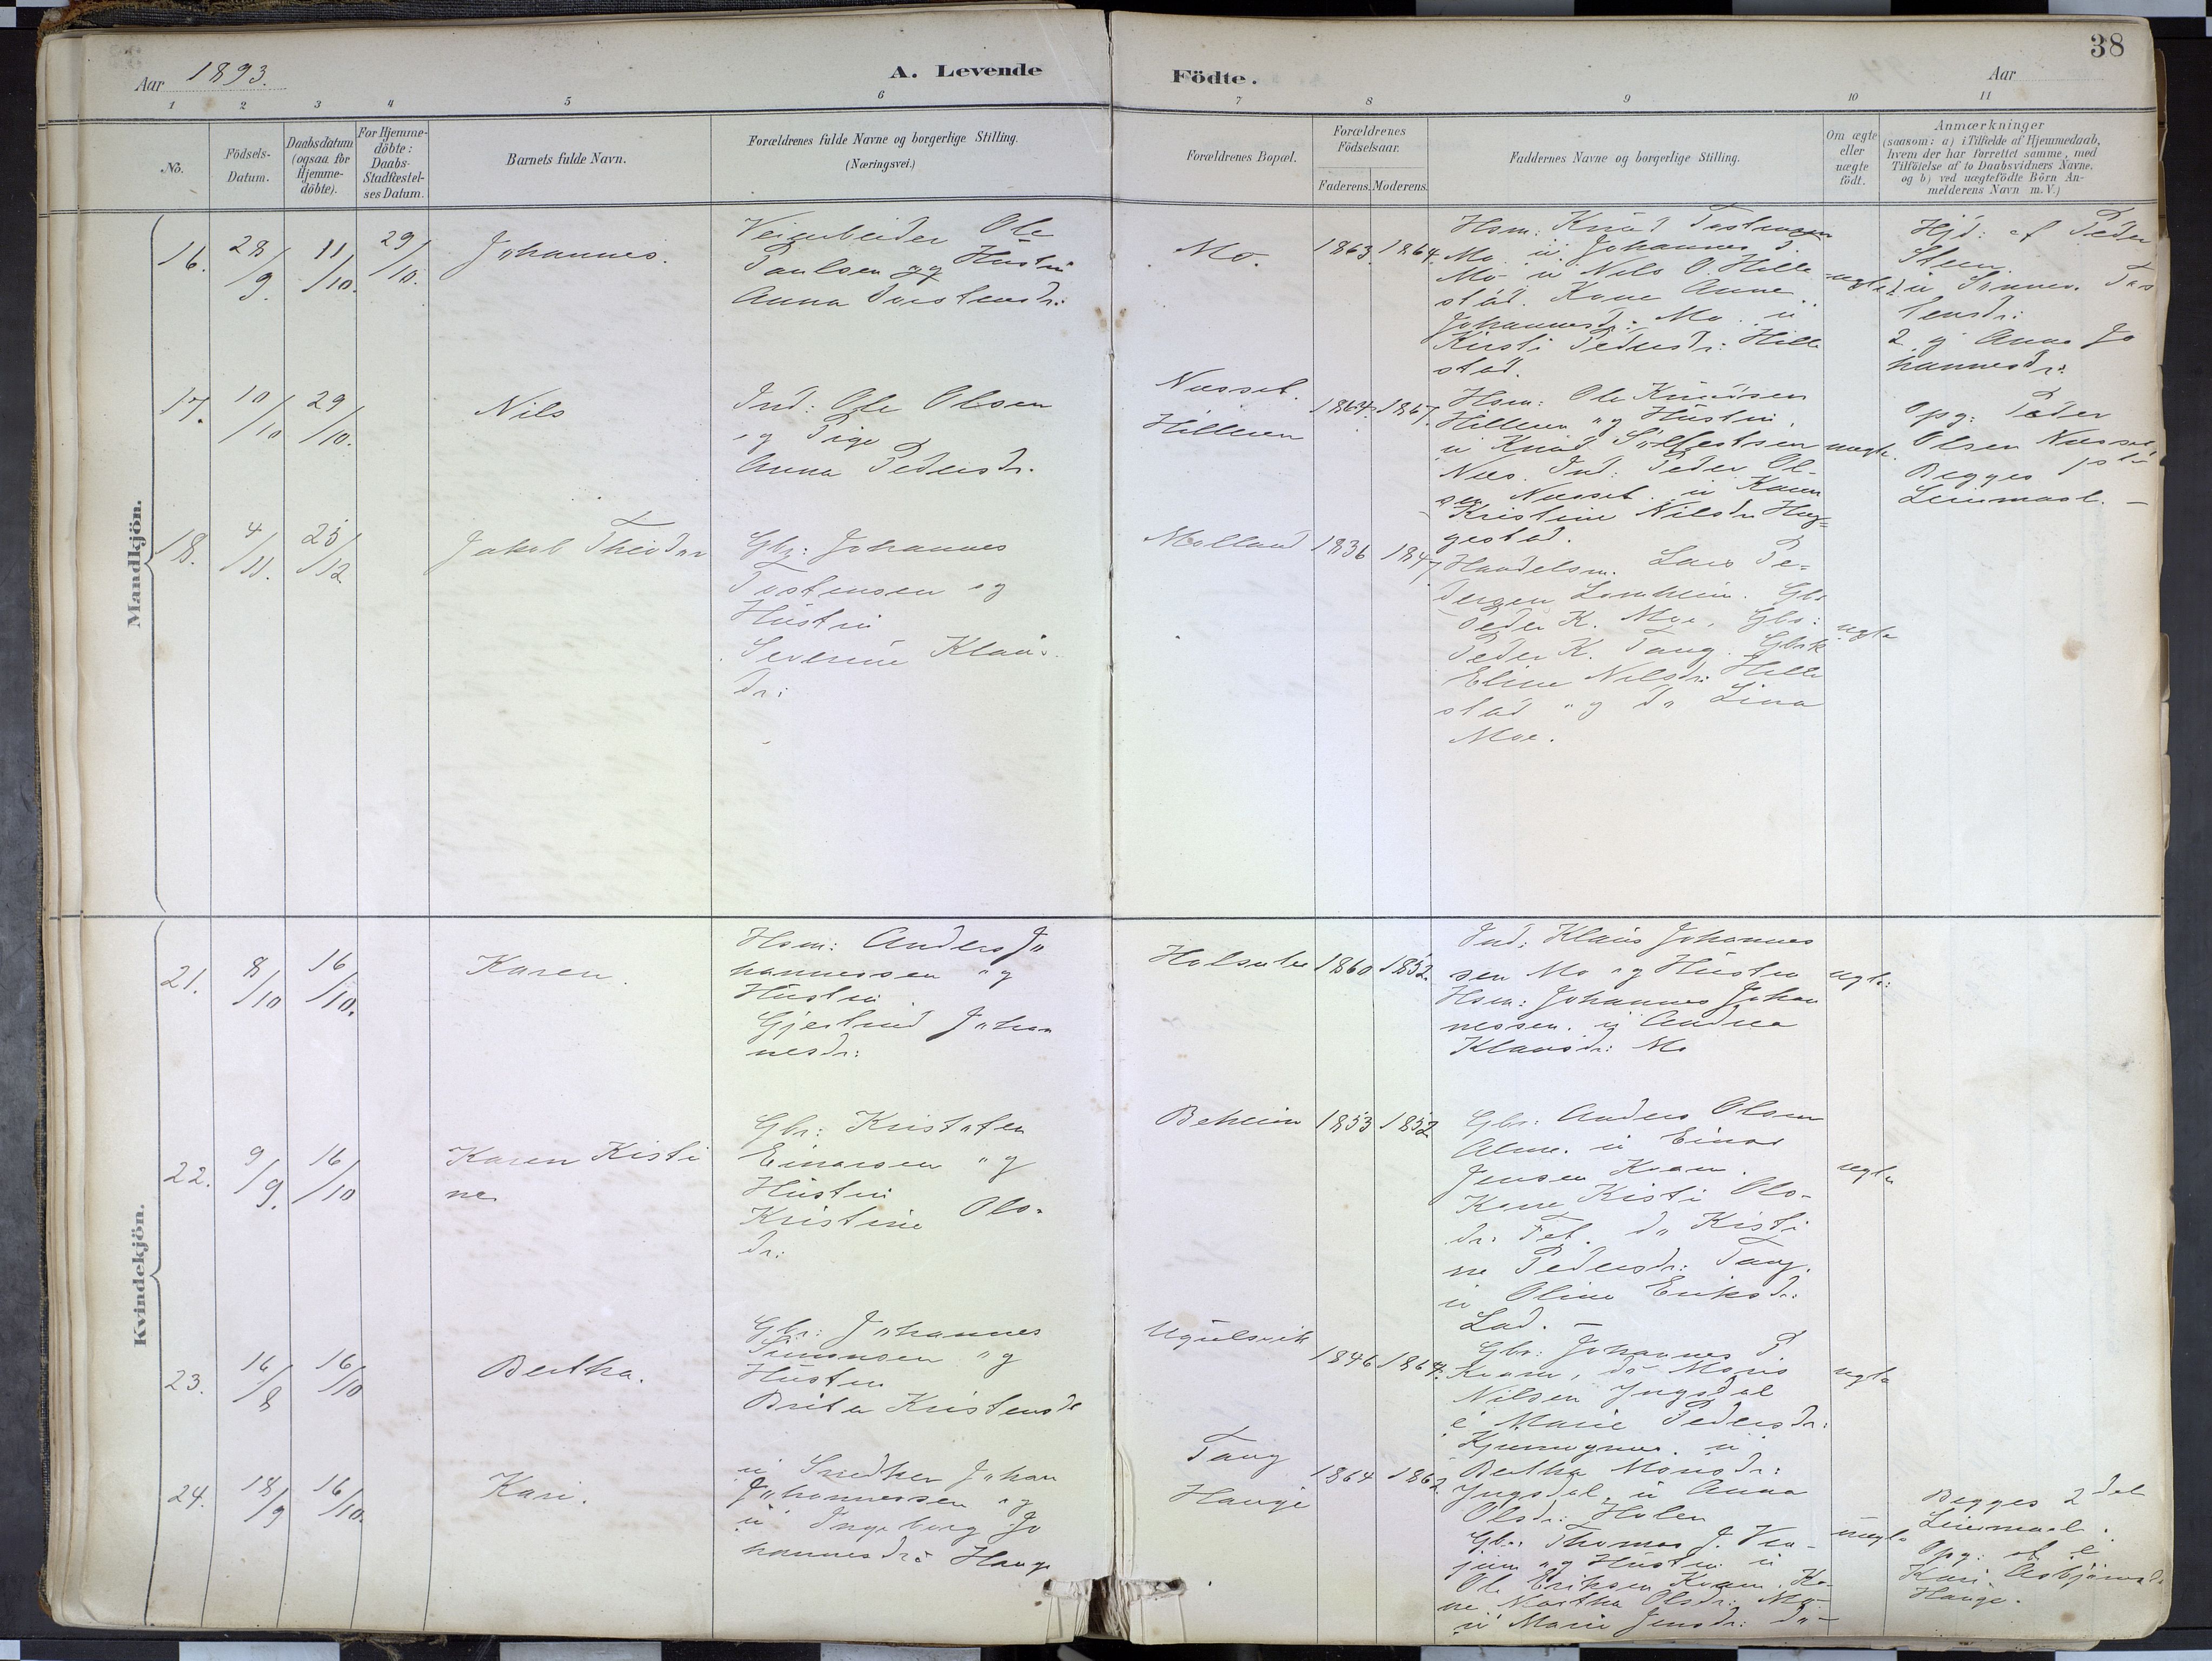 38
Aar 1893.
A. Levende
Födte.
Aar
1 2 3 4 5 6 7 8 9 10 11
No.
Födsels-
Datum.
Daabsdatum
(ogsaa for
Hjemme-
döbte).
For Hjemme-
döbte:
Daabs-
Stadfæstel-
ses Datum.
Barnets fulde Navn.
Forældrenes fulde Navne og borgerlige Stilling.
(Næringsvei.)
Forældrenes Bopæl.
Forældrenes
Födselsaar.
Faderens. Moderens.
Faddernes Navne og borgerlige Stilling.
Om ægte
eller
uægte
födt.
Anmærkninger
(saasom: a) i Tilfælde af Hjemmedaab,
hvem der har forrettet samme, med
Tilföielse af to Daabsvidners Navne.
og b) ved uægtefödte Börn An-
melderens Navn m. V.)
Mandkjön.
16.
28/9.
11/10.
29/10.
Johannes.
Veiarbeider Ole
Paulsen og Hustru
Anna Torstensdr:
Mo.
1863. 1864.
Hsm: Knud Tostensen
Mo. u Johannes J.
Mo u Nils O. Hille
stad. Kone Anne
Johannesdr: Mo. u
Kirsti Pedersdr: Hille
stad.
ægte
Hjd: af Peder
Steen.
2 og Anna Jo
hannesdr:
17.
10/10
29/10.
Nils
Ind: Ole Olsen
og Pige
Anna Pedersdr.
Næsset.
Hilleren
1864. 1867.
Hsm: Ole Knudsen
Hilleren og Hustru.
u Knud Sjelfestsen
Næs. Ind: Peder Ol-
sen Næsset. u Karen
Kristine Nilsdr Hug-
gestad.
uægte.
Opg: Peder
Olsen Næsset
Begges 1ste
Leiermaal. —
18.
4/11.
25/12
Jakob Theodor
Gbr: Johannes
Tostensen og
Hustru
Severine Klaus.
dr:
Molland
1836 1847
Handelsm. Lars Pe-
dersen Lemheim. Gbr
Peder K. Moe, Gbr:
Peder K. Tang. Gbrk
Eline Nilsdr: Hille
stad og do Lina
Moe.
ægte
Kvindekjön.
21.
8/10
16/10.
Karen.
Hsm: Anders Jo
hannessen og
Hustru
Gjertrud Johan
nesdr:
Holsæter
1860 1852.
Ind: Klaus Johannes
sen Mo og Hustru
Hsm: Johannes Johan
nessen. u Andrea
Klausdr: Mo
ægte:
22.
9/9.
16/10
Karen Kisti
ne
Gbr: Kristofen
Einarsen og
Hustru
Kristine Ols-
dr:
Beheim
1853 1852
Gbr: Anders Olsen
Alme. u Einar
Jensen Kvam.
Kone Kisti Ols-
dr: Fet. do Kisti
ne Pedersdr: Tang.
u Oline Eriksdr:
Lad. —
ægte
23.
16/8
16/10
Bertha.
Gbr: Johannes
Simonsen og
Hustru
Brita Kristensdr
Ugulsvik
1846 1864.
Gbr: Johannes P
Kvam, do Mons
Nilsen Yngsdal
e Marie Pedersdr:
u
Bertha Monsdr:
Yngsdal u Anna
Olsdr: Holen
ægte
24.
18/9
16/10.
Kari.
u Snedker Johan
Johannessen og
u Ingeborg Jo
hannesdr: Hauge
Tang
Hauge
1864 1862.
Gbr: Thomas J. Ven-
jum og Hustru u
Ole Eriksen Kvam. Ko-
ne Martha Olsdr: Mo.
u Marie Jensdr: do —
uægte
Begges 2det
Leiermaal.
Opg: af e
Kari Asbjörnsdr
Hauge.